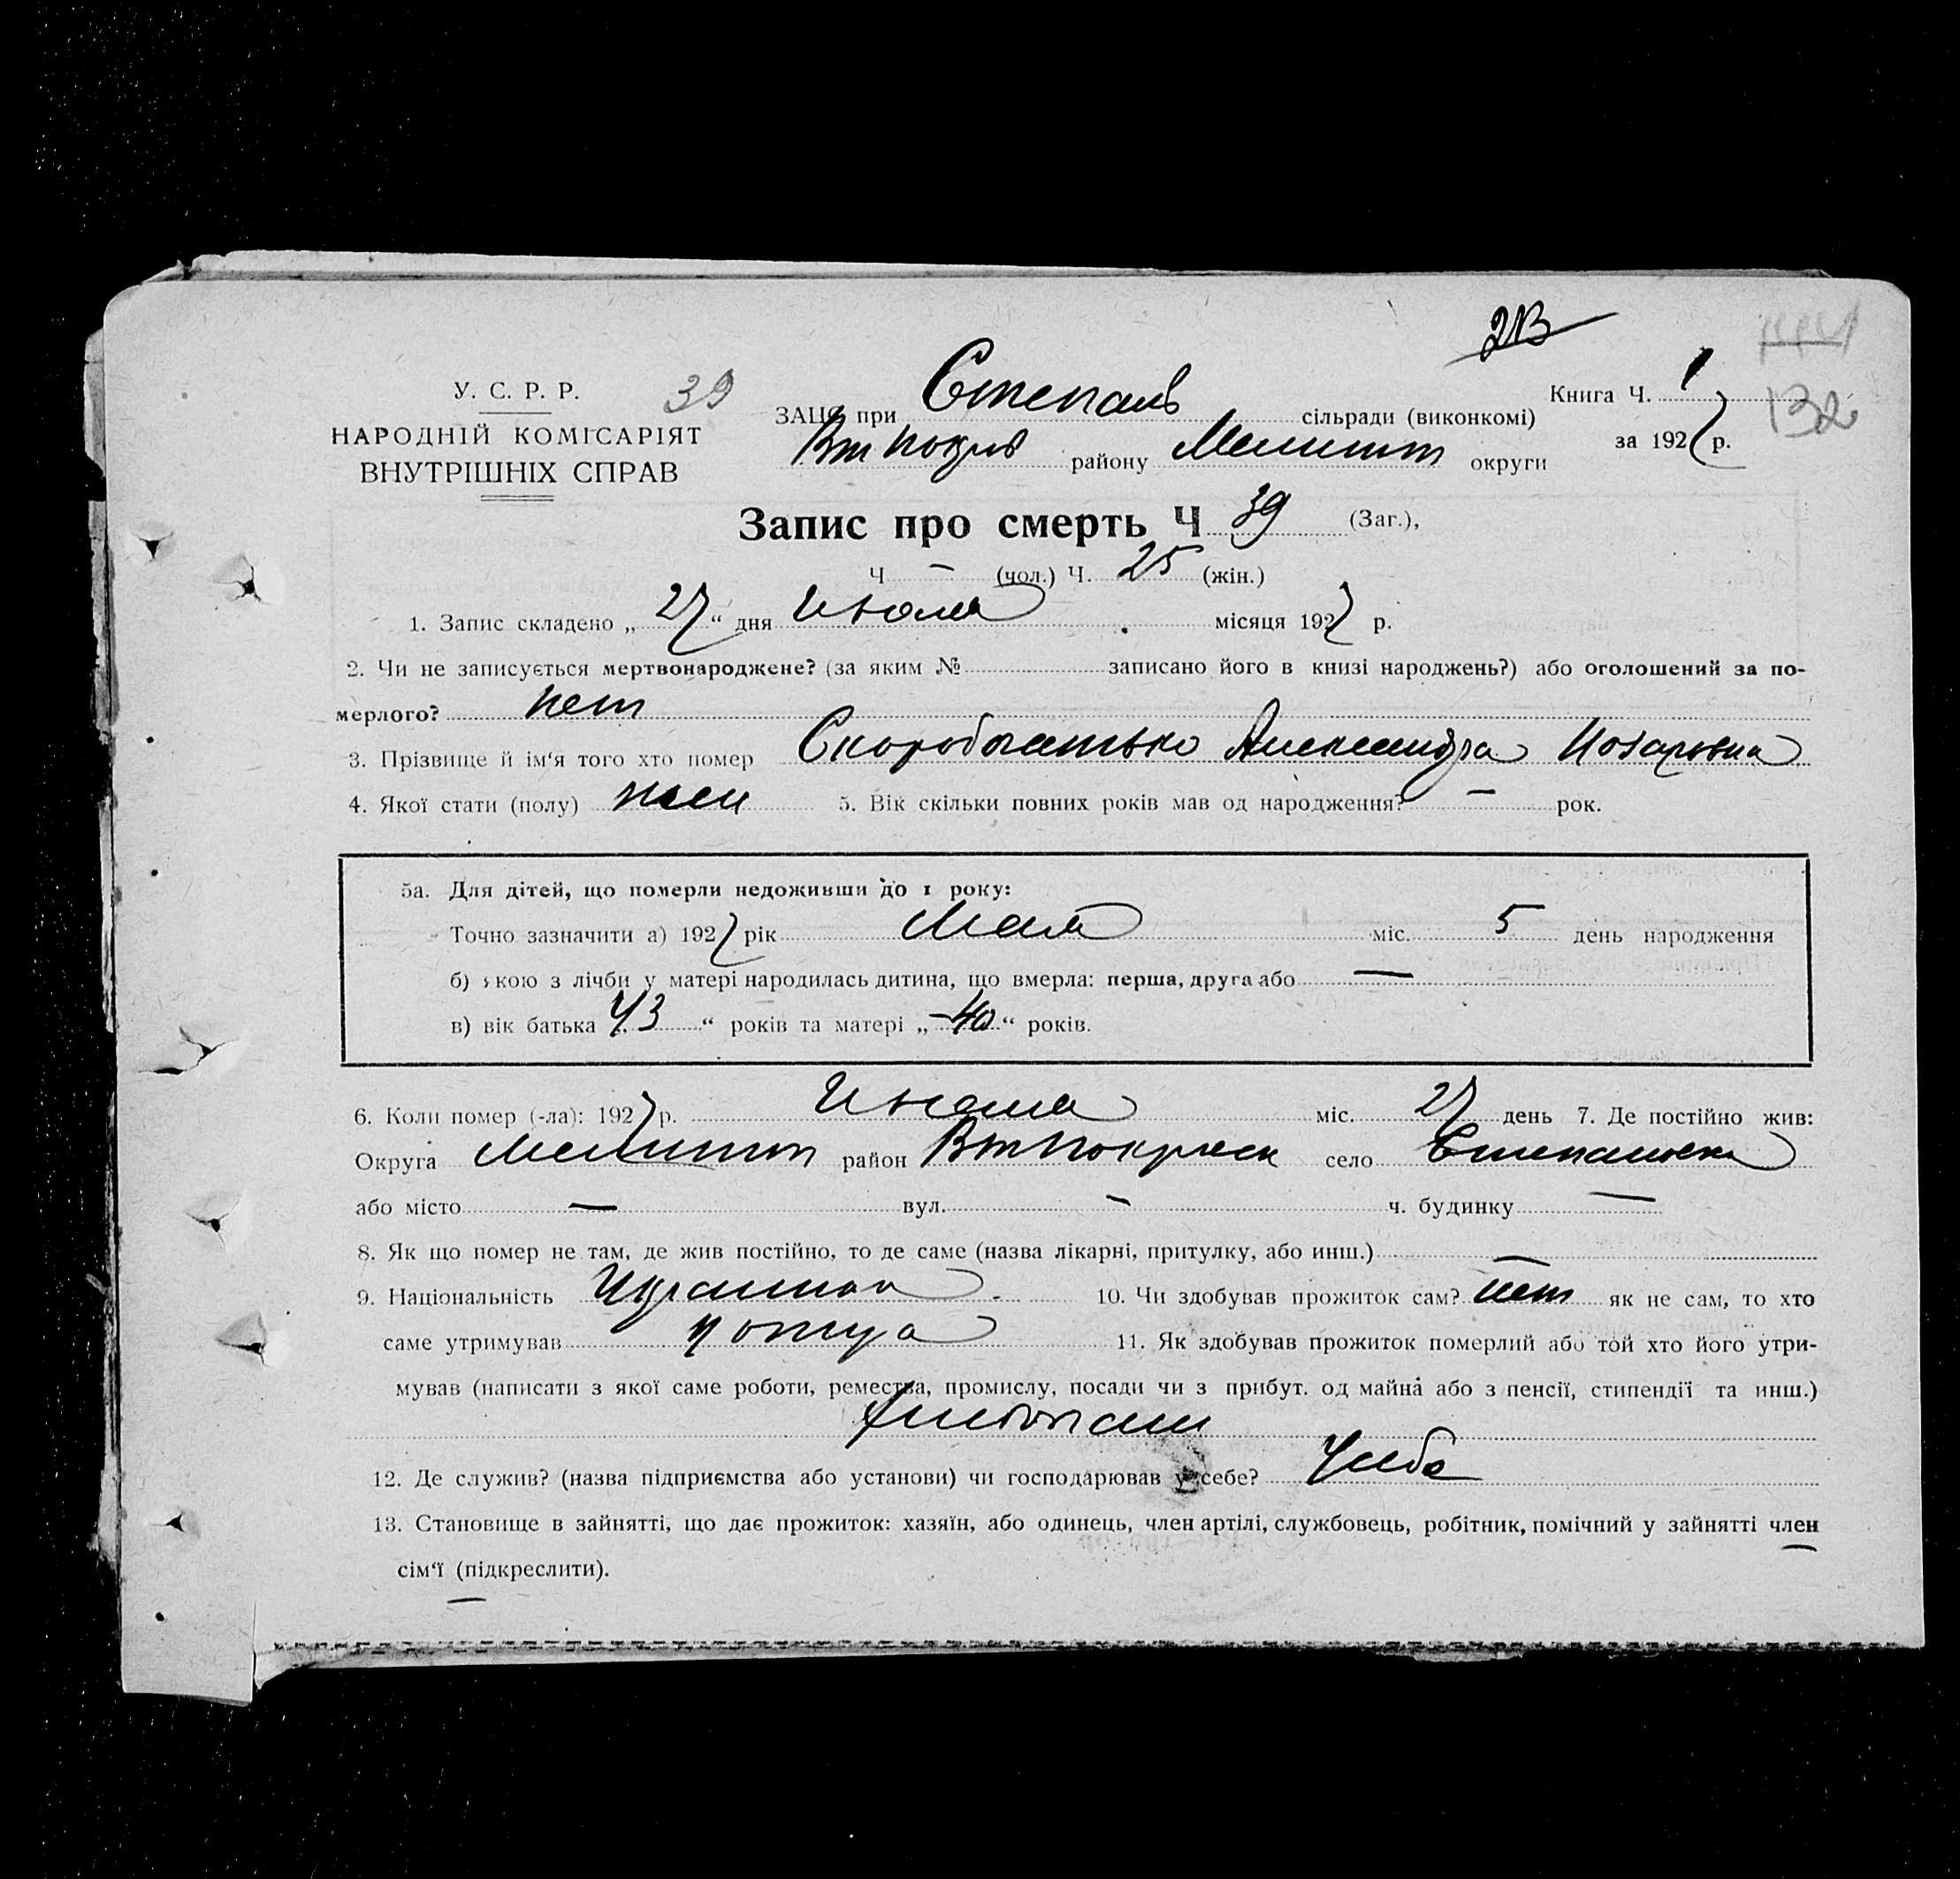 213
У. С. Р. Р.
39
ЗАЦС при Степанів сільради (виконкомі)
Книга Ч. 1
132
НАРОДНІЙ КОМІСАРІЯТ
Вт Покров району Мелитоп округи
за 1927 р.
ВНУТРІШНІХ СПРАВ
Запис про смерть Ч 39 (Заг.),
Ч — (чол.) Ч. 25 (жін.)
1. Запис складено „ 27 “ дня Июля місяця 1927 р.
2. Чи не записується мертвонароджене? (за яким № записано його в книзі народжень?) або оголошений за по-
мерлого? нет
3. Прізвище й ім‘я того хто помер Скоробогатько Александра Назаровна
4. Якої стати (полу) жен 5. Вік скільки повних років мав од народження? — рок.
5а. Для дітей, що померли недоживши до 1 року:
Точно зазначити а) 1927 рік Мая міс. 5 день народження
б) якою з лічби у матері народилась дитина, що вмерла: перша, друга або —
в) вік батька „ 43 “ років та матері „ 40 “ років.
6. Коли помер (-ла): 1927 р. Июля міс. 27 день 7. Де постійно жив:
Округа Мелитоп район Вт Покровск село Степановка
або місто — вул. — ч. будинку —
8. Як що помер не там, де жив постійно, то де саме (назва лікарні, притулку, або инш.) —
9. Національність 10. Чи здобував прожиток сам? нет як не сам, то хто
саме утримував 11. Як здобував прожиток померлий або той хто його утри-
мував (написати з якої саме роботи, ремества, промислу, посади чи з прибут. од майна або з пенсії, стипендії та инш.)
12. Де служив? (назва підприємства або установи) чи господарював у себе? У себе
13. Становище в зайнятті, що дає прожиток: хазяїн, або одинець, член артілі, службовець, робітник, помічний у зайнятті член
сім‘ї (підкреслити).